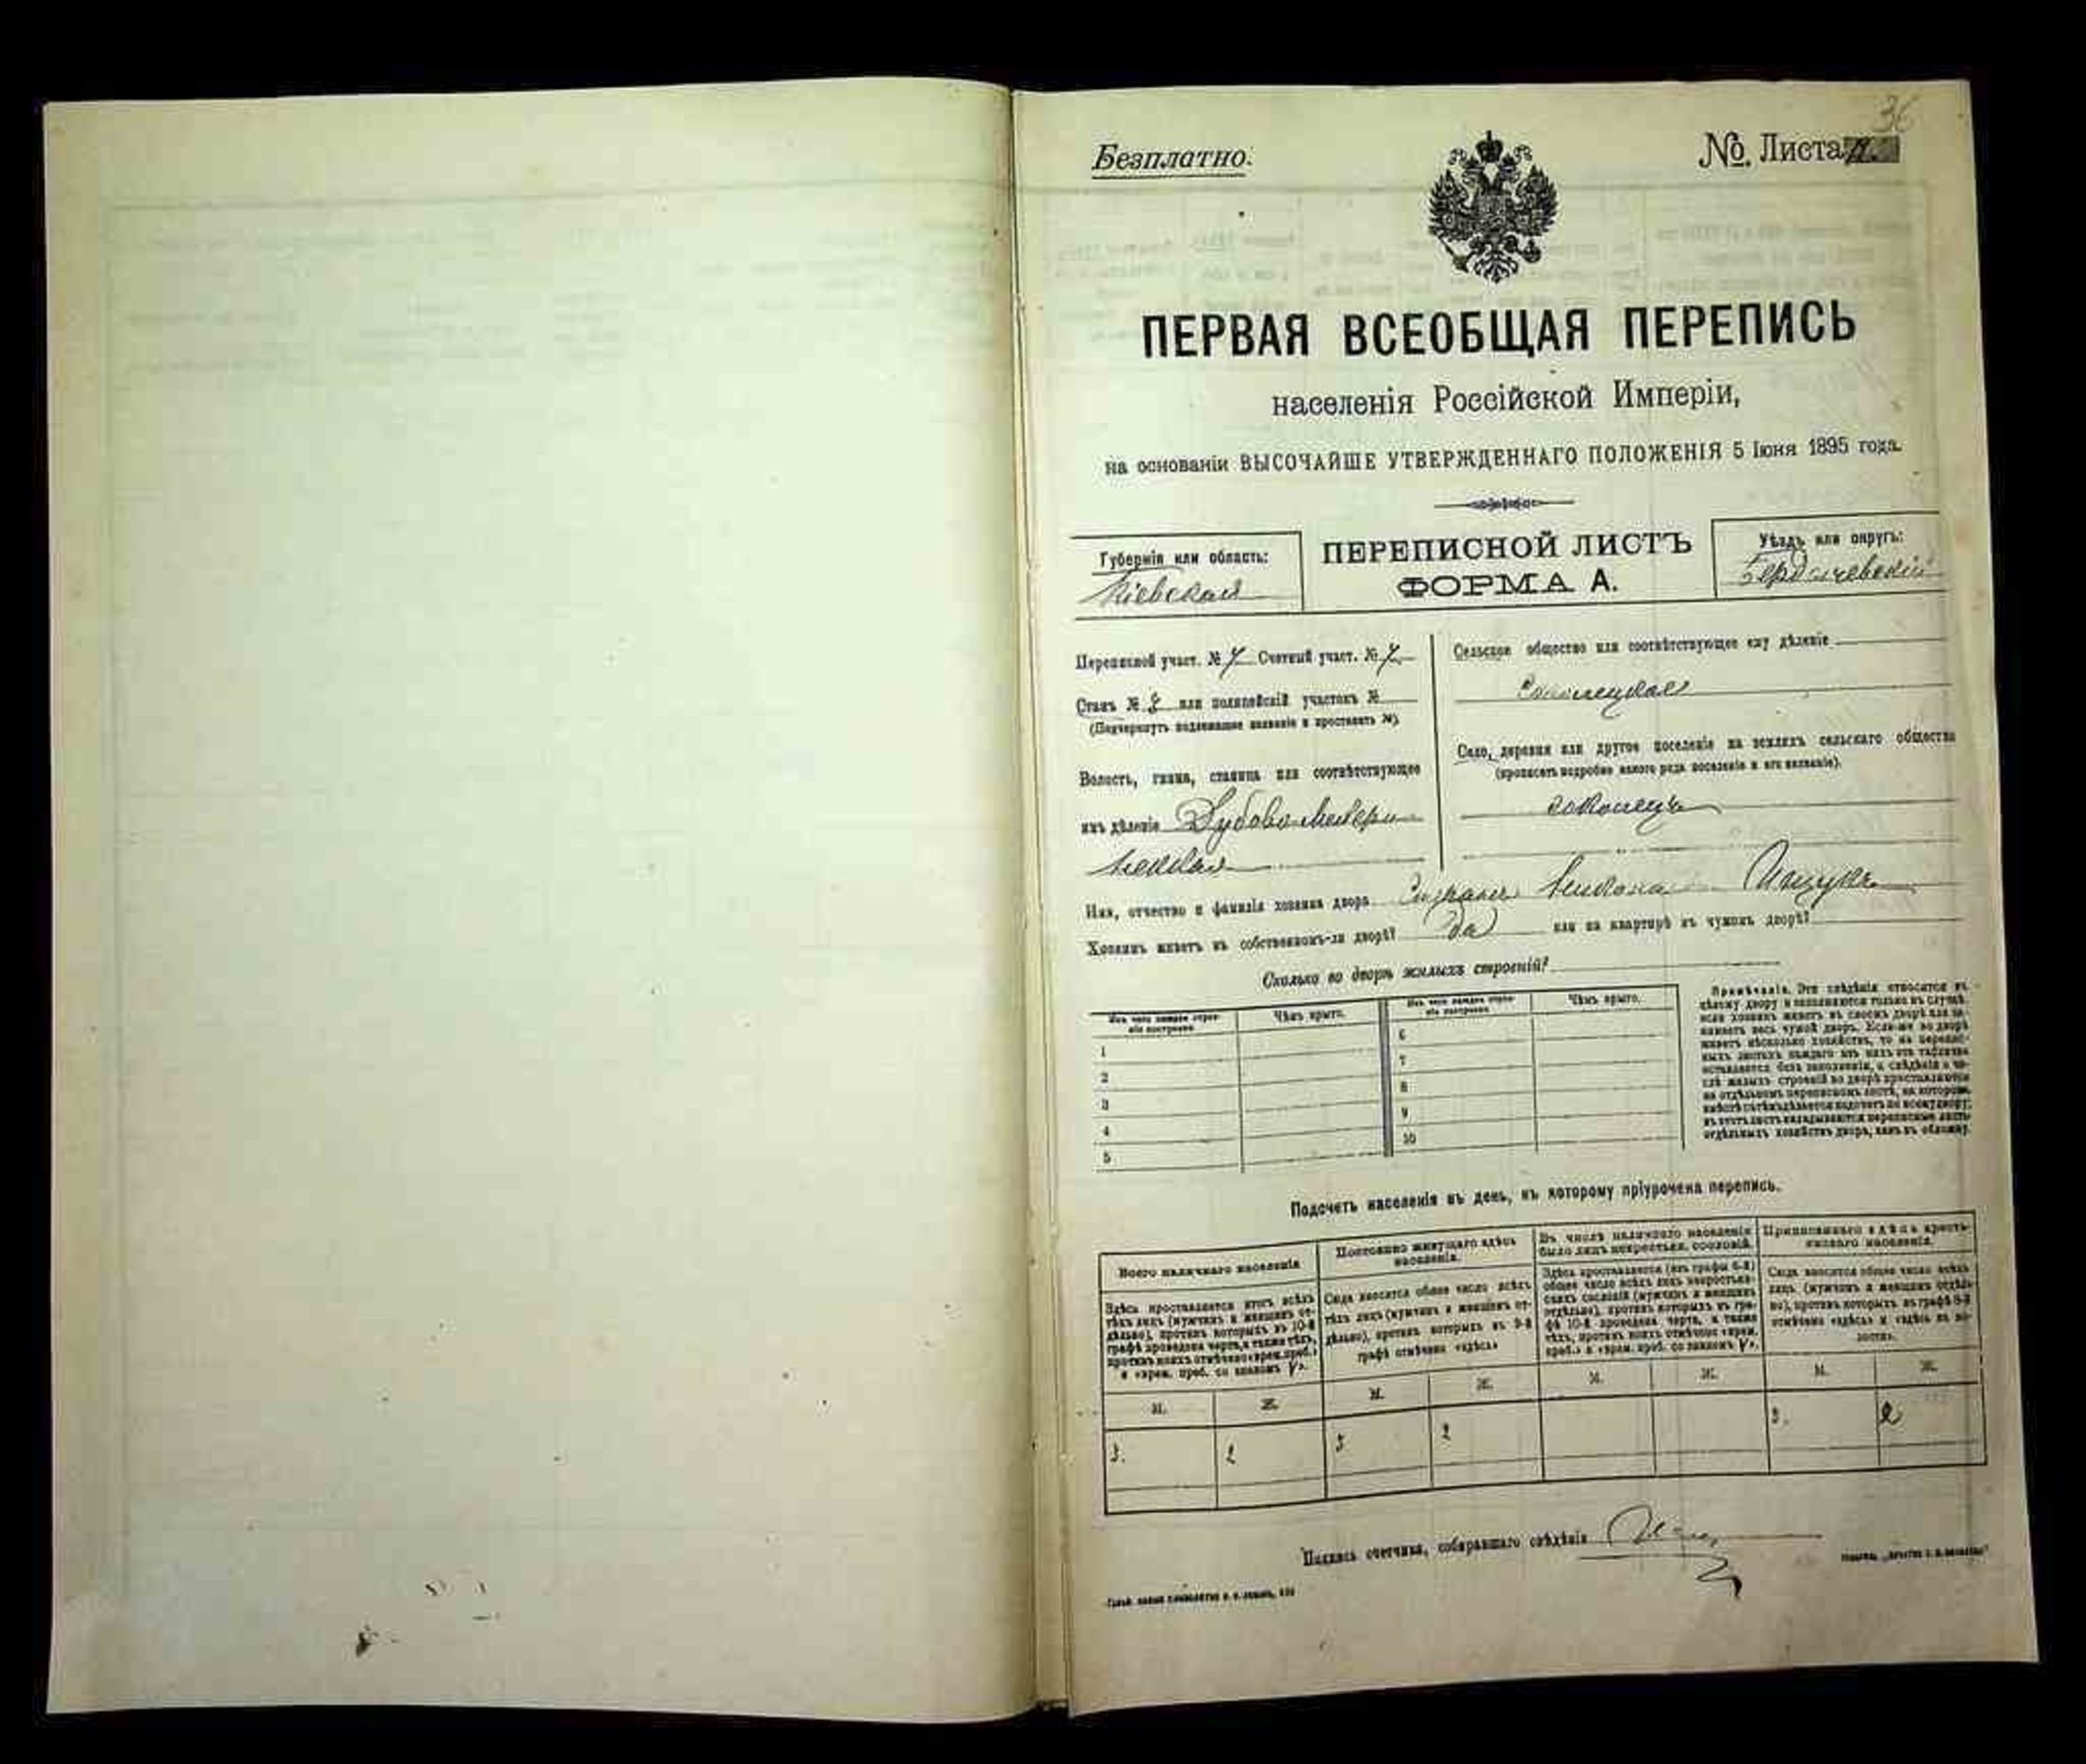 36
Безплатно.
№ Листа
ПЕРВАЯ ВСЕОБЩАЯ ПЕРЕПИСЬ
населенія Россійской Имперіи,
на основаніи ВЫСОЧАЙШЕ УТВЕРЖДЕННАГО ПОЛОЖЕНІЯ 5 Іюня 1895 года.
Губернія или область:
Кіевская
ПЕРЕПИСНОЙ ЛИСТЪ
ФОРМА А.
Уѣздъ или округъ:
Бердичевскій
Переписной участ. № 7 Счетный участ. № 7
Станъ № или полицейскій участокъ №
(Подчеркнуть надлежащее названіе и проставить №).
Волость, гмина, станица или соотвѣтствующее
имъ дѣленіе Дубово-Махари
нецкая
Сельское общество или соотвѣтствующее ему дѣленіе
Соколецкое
Село, деревня или другое поселеніе на земляхъ сельскаго общества
(прописать подробно какого рода поселеніе и его названіе).
Соколецъ
Имя, отчество и фамилія хозяина двора
Хозяинъ живетъ въ собственномъ-ли дворѣ? да или на квартирѣ въ чужомъ дворѣ?
Сколько во дворѣ жилыхъ строеній?
Изъ чего каждое строе-
ніе построено
Чѣмъ крыто.
Изъ чего каждое строе-
ніе построено
Чѣмъ крыто.
1
2
3
4
5
6
7
8
9
10
Примѣчаніе. Эти свѣдѣнія относятся къ
цѣлому двору и заполняются только въ случаѣ,
если хозяинъ живетъ въ своемъ дворѣ или за-
нимаетъ весь чужой дворъ. Если-же во дворѣ
живетъ нѣсколько хозяйствъ, то на перепис-
ныхъ листахъ каждаго изъ нихъ эта табличка
оставляется безъ заполненія, а свѣдѣнія о чи-
слѣ жилыхъ строеній во дворѣ проставляются
на отдѣльномъ переписномъ листѣ, на которомъ
вмѣстѣ съ тѣмъ дѣлается подсчетъ по всему двору;
въ этотъ листъ вкладываются переписные листы
отдѣльныхъ хозяйствъ двора, какъ въ обложку.
Подсчетъ населенія въ день, къ которому пріурочена перепись.
Всего наличнаго населенія
Здѣсь проставляется итогъ всѣхъ
тѣхъ лицъ (мужчинъ и женщинъ от-
дѣльно), противъ которыхъ въ 10-й
графѣ проведена черта, а также тѣхъ,
противъ коихъ отмѣчено «врем. преб.»
и «врем. преб. со знакомъ V».
Постоянно живущаго здѣсь
населенія.
Сюда вносится общее число всѣхъ
тѣхъ лицъ (мужчинъ и женщинъ от-
дѣльно), противъ которыхъ въ 9-й
графѣ отмѣчено «здѣсь»
Въ числѣ наличнаго населенія
было лицъ некрестьян. сословій.
Здѣсь проставляется (изъ графы 6-й)
общее число всѣхъ лицъ некрестьян-
скихъ сословій (мужчинъ и женщинъ
отдѣльно), противъ которыхъ въ гра-
фѣ 10-й проведена черта, а также
тѣхъ, противъ коихъ отмѣчено «врем.
преб.» и «врем. преб. со знакомъ V».
Приписаннаго здѣсь кресть-
янскаго населенія.
Сюда вносится общее число всѣхъ
лицъ (мужчинъ и женщинъ отдѣль-
но), противъ которыхъ въ графѣ 8-й
отмѣчено «здѣсь» и «здѣсь въ во-
лости».
М. Ж. М. Ж. М. Ж. М. Ж.
3. 2 3 2 3. 2
Подпись счетчика, собиравшаго свѣдѣнія